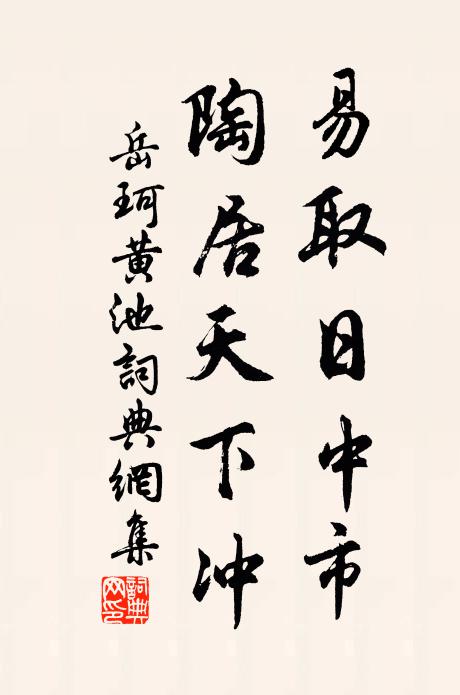 易取日中市
陶居天下冲
岳珂黄池詞典網集
詞典網印